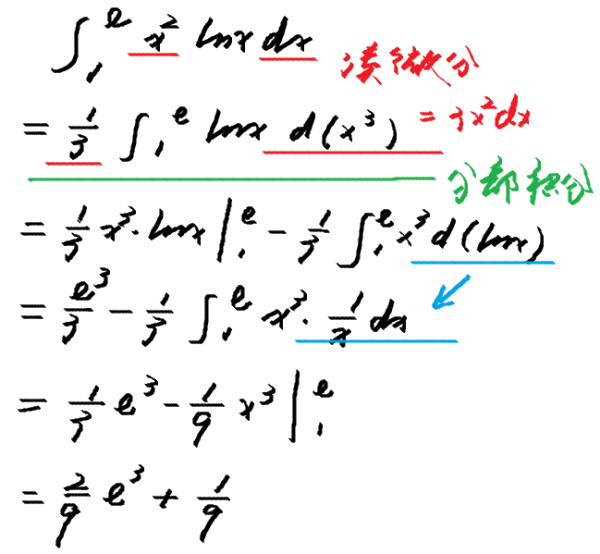 ∫₁ᵉ x² lnx dx 凑微分
= 1/3 ∫₁ᵉ lnx d(x³) = 3x²dx
分部积分
= 1/3 x³·lnx |₁ᵉ - 1/3 ∫₁ᵉ x³ d(lnx)
= e³/3 - 1/3 ∫₁ᵉ x³· 1/x dx
= 1/3 e³ - 1/9 x³ |₁ᵉ
= 2/9 e³ + 1/9